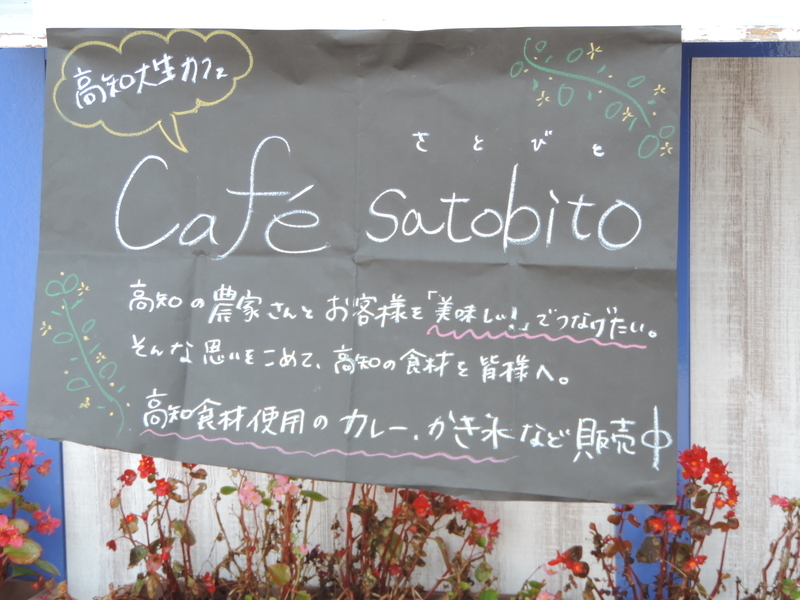 高知大生カフェ
さとびと
Café satobito
高知の農家さんとお客様を「美味しい!」でつなげたい。
そんな思いをこめて、高知の食材を皆様へ。
高知食材使用のカレー、かき氷など販売中